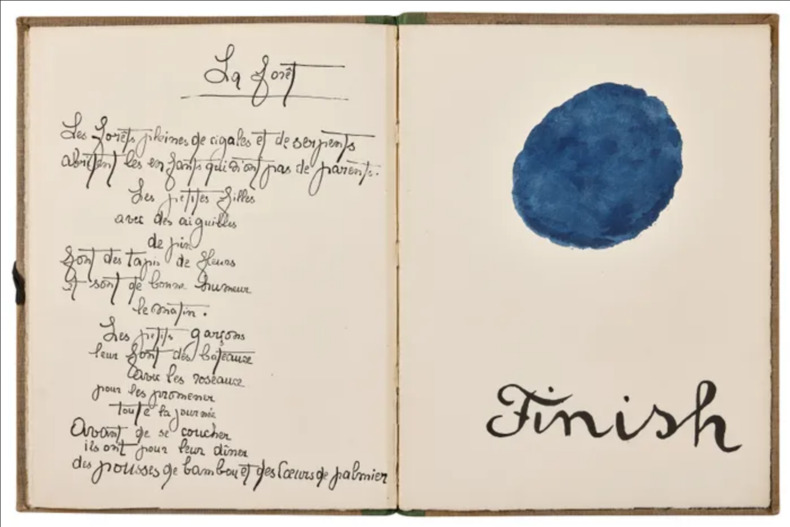 La forêt
Les forêts pleines de cigales et de serpents
abritent les enfants qui n'ont pas de parents.
Les petites filles
avec des aiguilles
de pin
font des tapis de fleurs
et sont de bonne humeur
le matin.
Les petits garçons
leur font des bateaux
avec les roseaux
pour les promener
toute la journée
Avant de se coucher
ils ont pour leur dîner
des pousses de bambou et des Cœurs de palmier
Finish